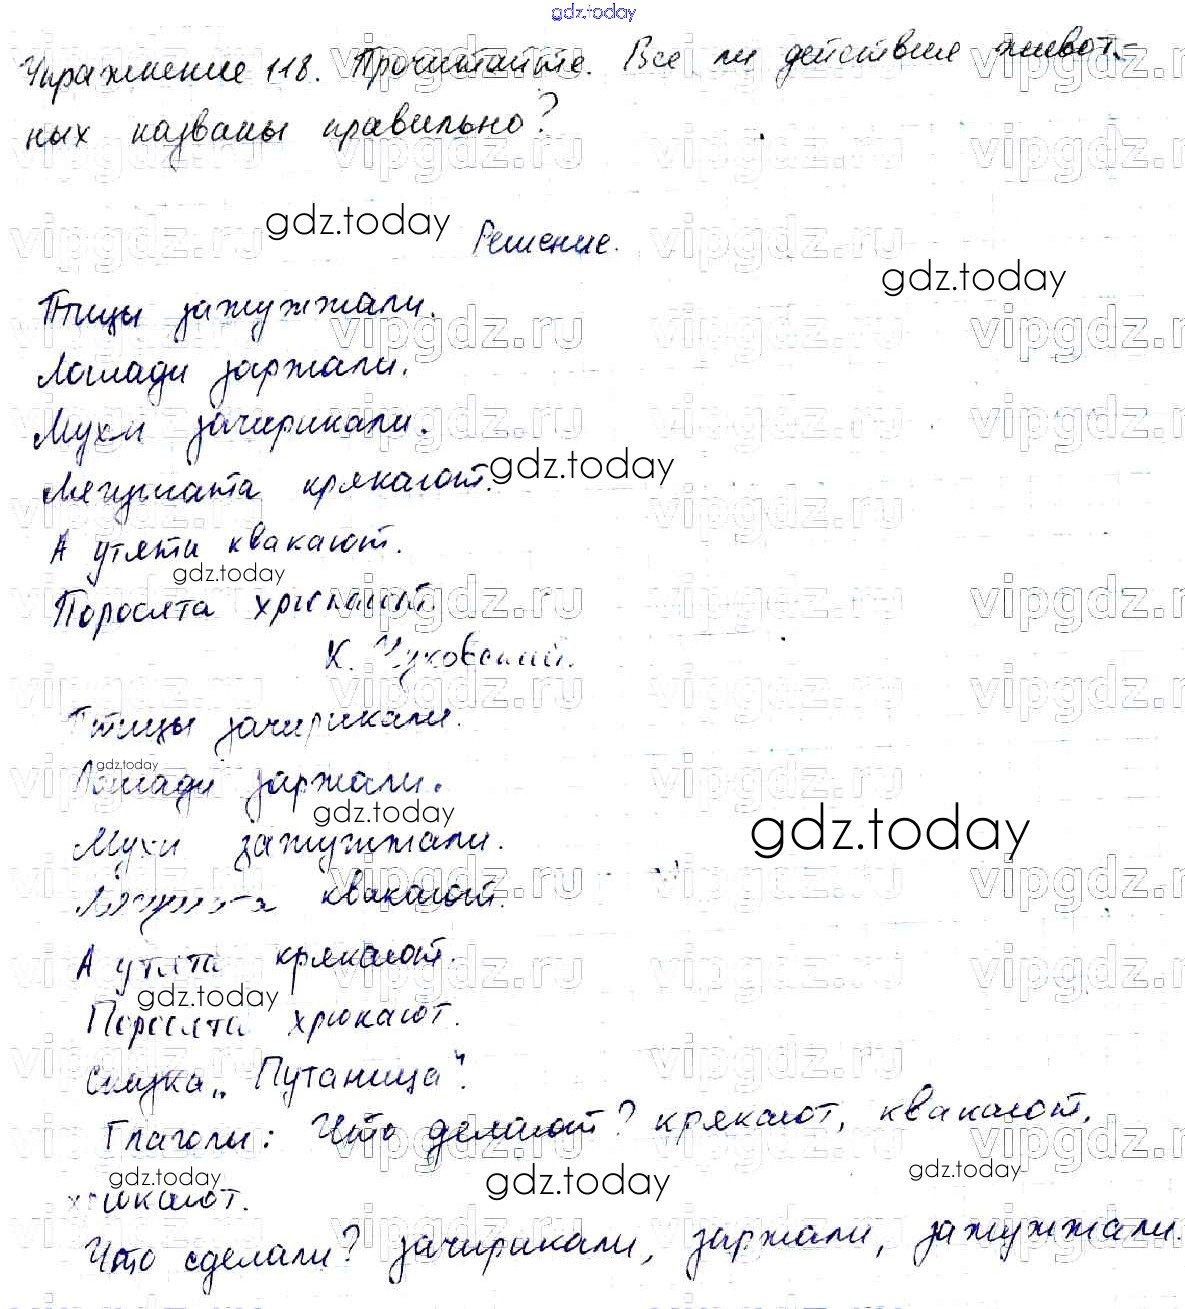 gdz.today
Упражнение 118. Прочитайте. Все ли действия живот-
ных названы правильно?
gdz.today
Решение.
gdz.today
Птицы зажужжали.
Лошади заржали.
Мухи зачирикали.
gdz.today
Лягушата крякают.
А утяти квакают.
gdz.today
Поросята хрюкают.
К. Чуковский.
Птицы зачирикали.
gdz.today
Лошади заржали.
gdz.today
gdz.today
Мухи зажужжали.
Лягушата квакают.
А утята крякают.
gdz.today
Поросята хрюкают.
Сказка „Путаница".
Глаголы: Что делают? крякают, квакают,
gdz.today
gdz.today
gdz.today
хрюкают.
Что сделали? зачирикали, заржали, зажужжали.
vipgdz.ru